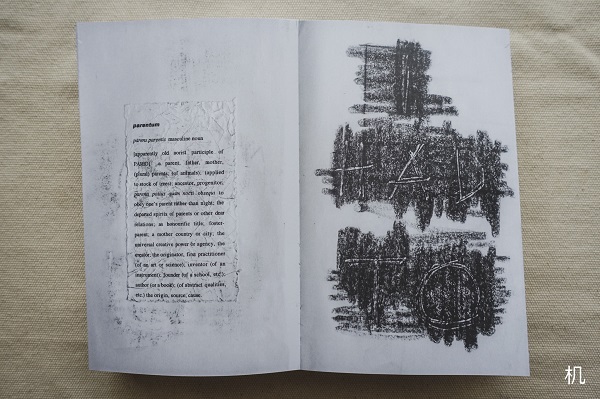 parentum
parens parentis masculine noun
[apparently old aorist participle of
PARIO] a parent, father, mother,
(plural) parents; (of animals); (applied
to stock of trees) ancestor, progenitor;
quam nocti to
obey one's parent rather than night; the
departed spirits of parents or other dear
relations; as honorific title, foster-
parent; a mother country or city; the
universal creative power or agency, the
creator, the originator, first practitioner
(of an art or science); inventor (of an
instrument); founder (of a school, etc);
author (of a book); (of abstract qualities,
etc.) the origin, source, cause.
TO
机